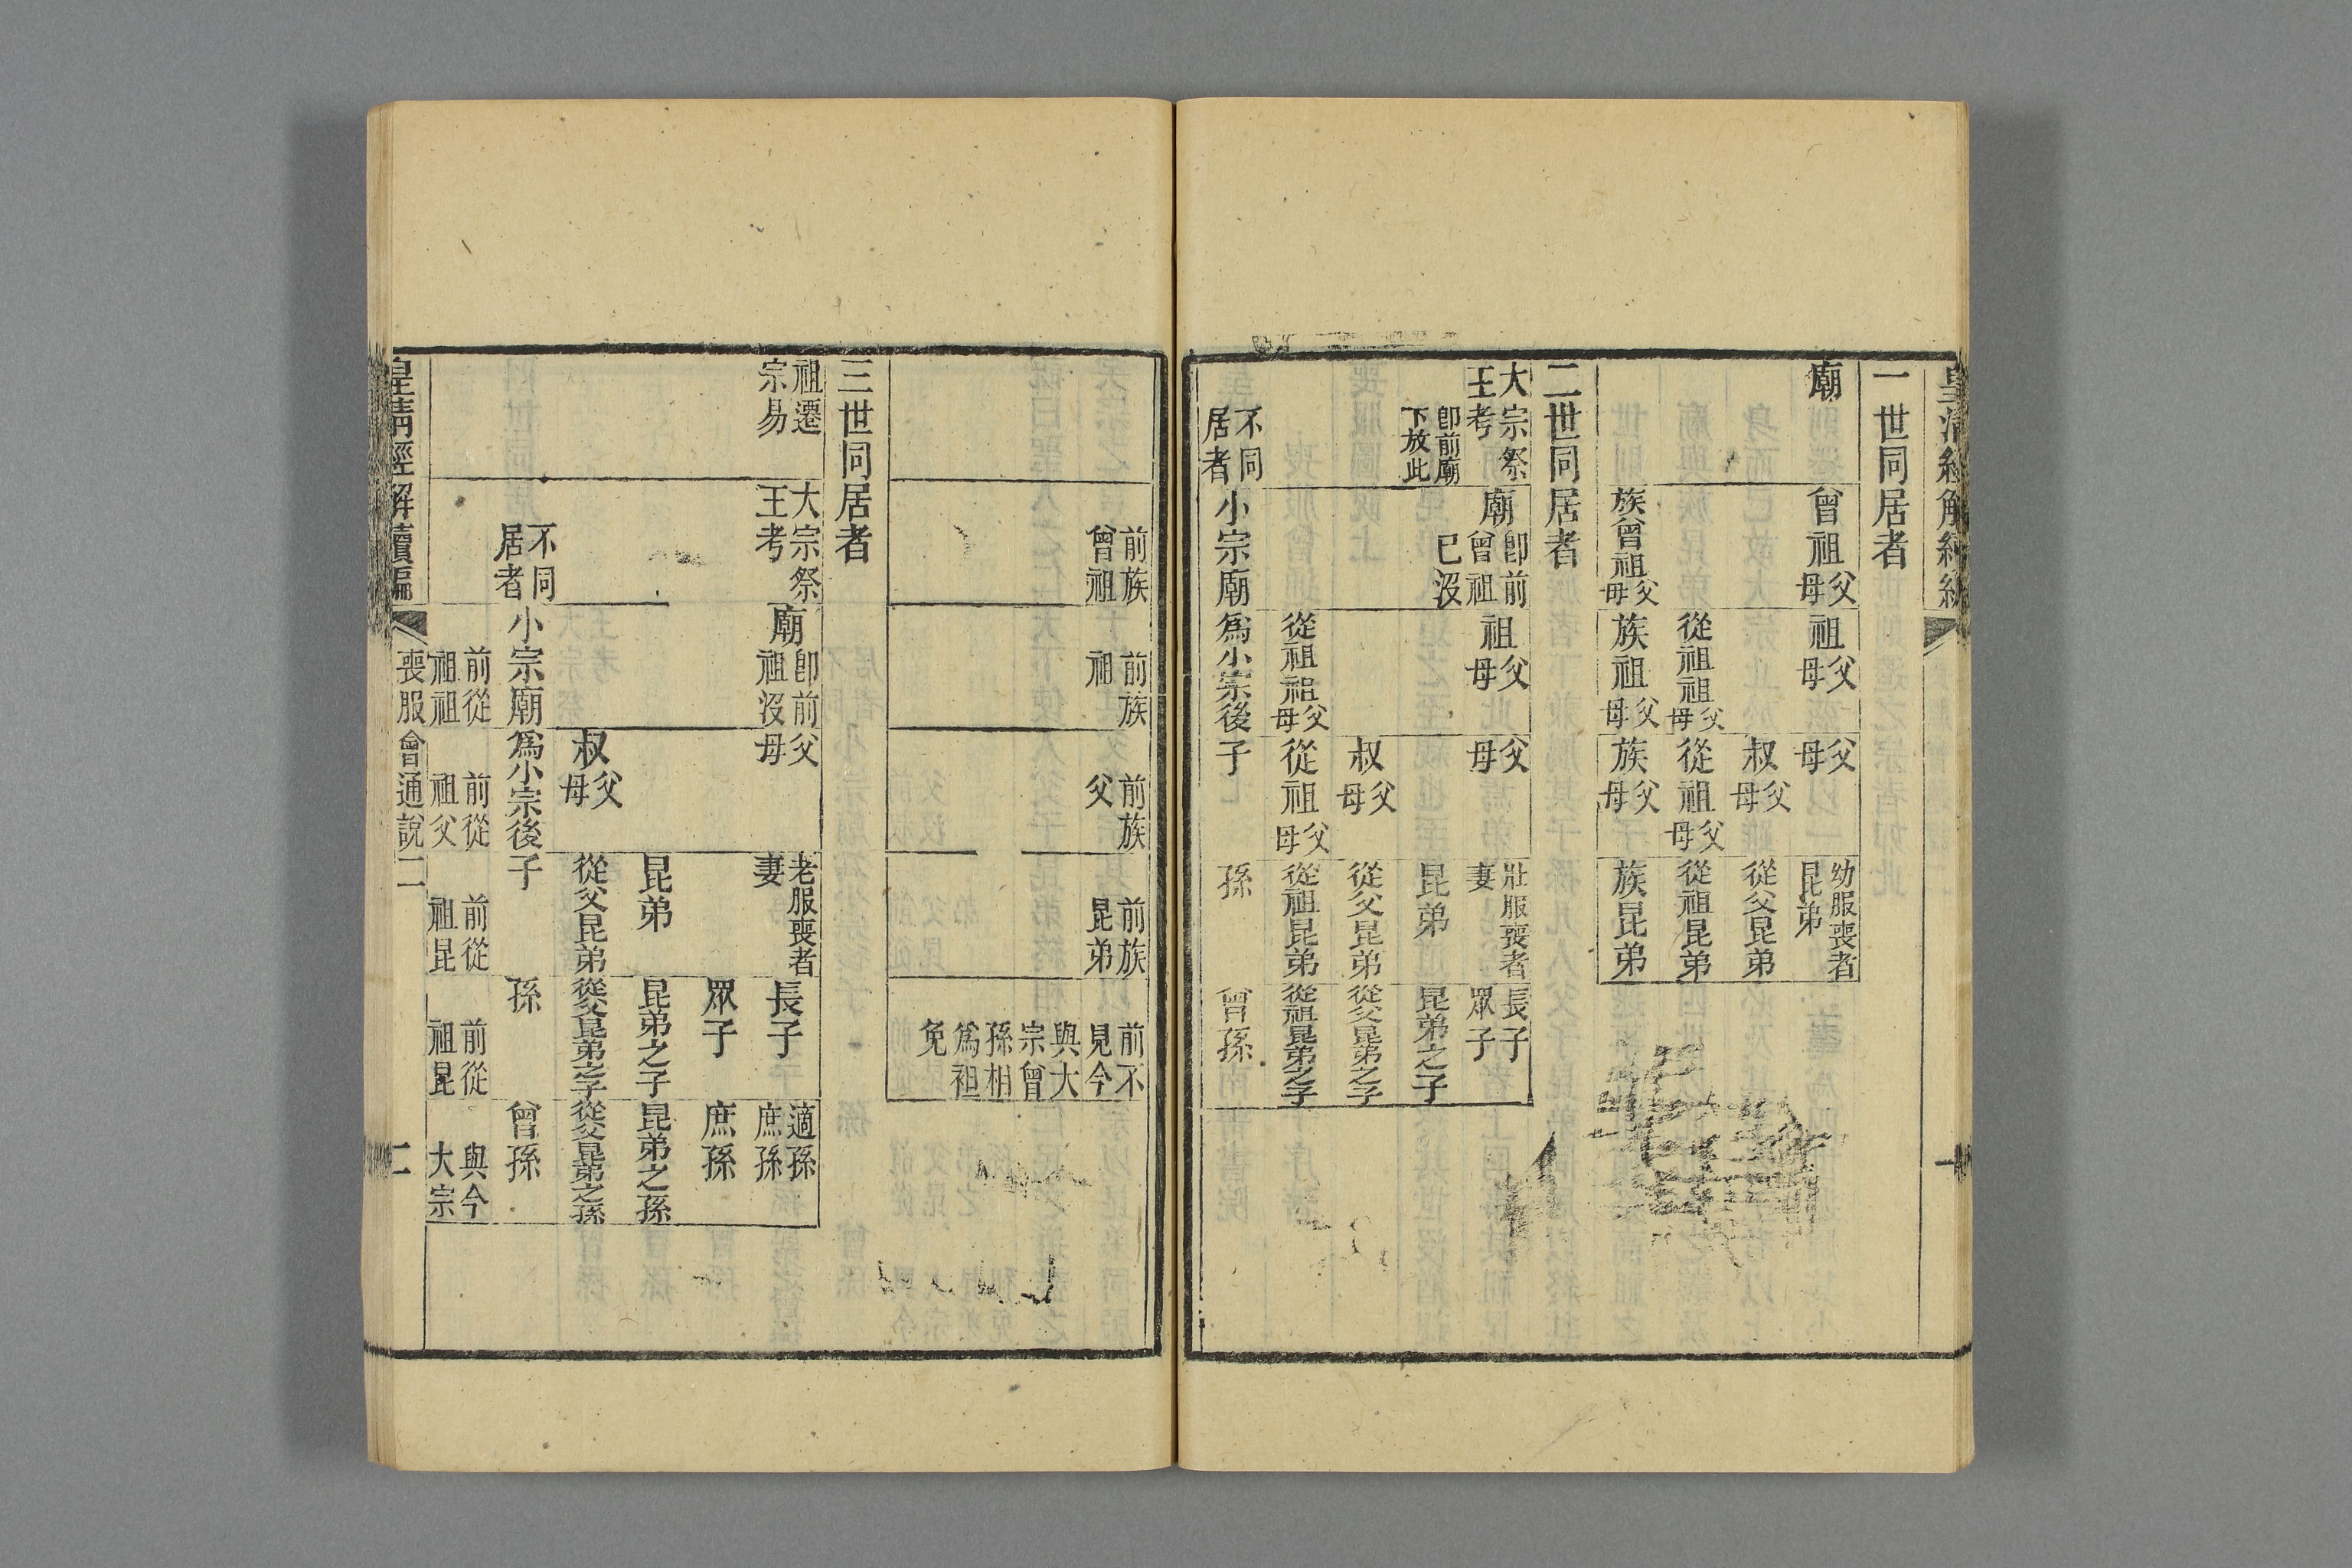 皇清經解續編
一
一世同居者
廟 曾祖父母 祖父母 父母 幼服喪者昆弟
叔父母 從父昆弟
從祖祖父母 從祖父母 從祖昆弟
族曾祖父母 族祖父母 族父母 族昆弟
二世同居者
大宗祭王考 廟即前曾祖已沒 祖父母 父母 壯服喪者妻 長子眾子
即前廟下放此 昆弟 昆弟之子
叔父母 從父昆弟 從父昆弟之子
從祖祖父母 從祖父母 從祖昆弟 從祖昆弟之子
不同居者 小宗廟 爲小宗後 子 孫 曾孫
前族曾祖 前族祖 前族父 前族昆弟 前不見今與大宗曾孫相爲袒免
三世同居者
祖遷宗易 大宗祭王考 廟即前祖沒 父母 老服喪者妻 長子 適孫庶孫
眾子 庶孫
昆弟 昆弟之子 昆弟之孫
叔父母 從父昆弟 從父昆弟之子 從父昆弟之孫
不同居者 小宗廟 爲小宗後 子 孫 曾孫
前從祖祖 前從祖父 前從祖昆 前從祖昆 與今大宗
皇清經解續編 喪服會通說二
二